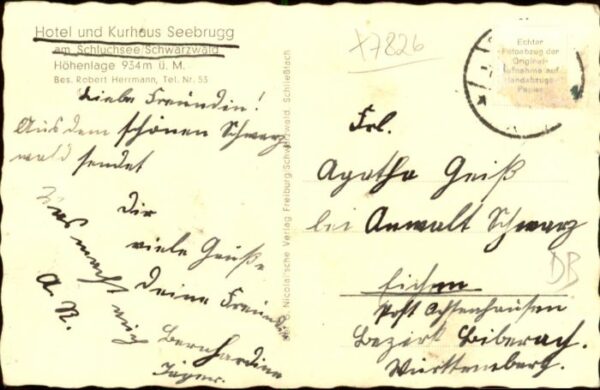 Hotel und Kurhaus Seebrugg
am Schluchsee/Schwarzwald
Höhenlage 934m ü. M.
Bes. Robert Herrmann, Tel. Nr. 55
Liebe Freundin!
Aus dem schönen Schwarz
wald sendet
Dir
viele Grüße
Deine Freundin
Bernhardine
Jäger.
Was macht
A. R.
Nicolai'sche Verlag Freiburg-Schwarzwald, Schließfach
X7826
Echter
Fotoabzug der
Original-
Aufnahme auf
Handabzugs-
Papier
Frl.
Agatha Geiß
bei Anwalt Schwarz
Eichen
Post Ochsenhausen
Bezirk Biberach.
Württemberg.
DB